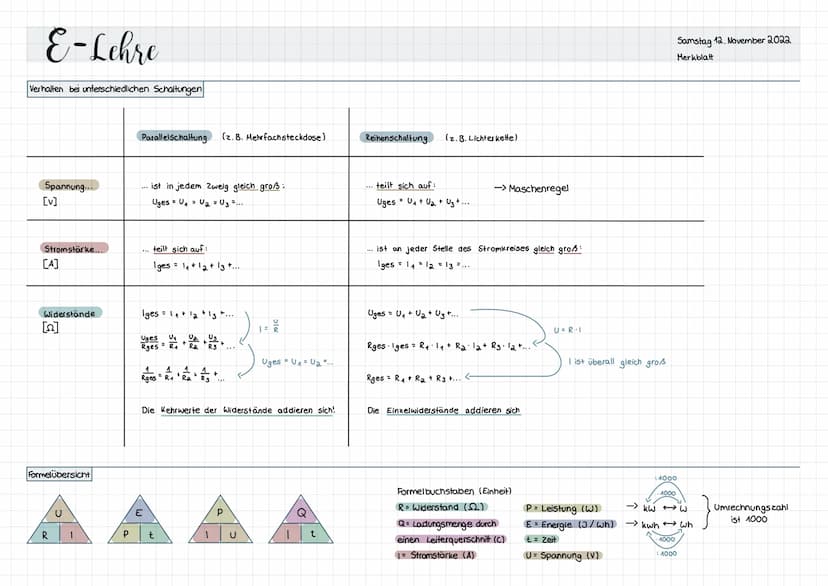 E-Lehre
Samstag 12. November 2022
Merkblatt
Verhalten bei unterschiedlichen Schaltungen
Parallelschaltung (z.B. Mehrfachsteckdose)
Reihenschaltung (z.B. Lichterkette)
Spannung...
[V]
... ist in jedem Zweig gleich groß:
Uges = U1 = U2 = U3 = ...
... teilt sich auf:
Uges = U1 + U2 + U3 + ...
→ Maschenregel
Stromstärke...
[A]
... teilt sich auf:
Iges = I1 + I2 + I3 + ...
... ist an jeder Stelle des Stromkreises gleich groß:
Iges = I1 = I2 = I3 = ...
Widerstände
[Ω]
Iges = I1 + I2 + I3 + ...
I = U/R
Uges/Rges = U1/R1 + U2/R2 + U3/R3 + ...
Uges = U1 = U2 = ...
1/Rges = 1/R1 + 1/R2 + 1/R3 + ...
Die Kehrwerte der Widerstände addieren sich!
Uges = U1 + U2 + U3 + ...
U = R · I
Rges · Iges = R1 · I1 + R2 · I2 + R3 · I2 + ...
I ist überall gleich groß
Rges = R1 + R2 + R3 + ...
Die Einzelwiderstände addieren sich
Formelübersicht
U
R I
E
P t
P
I U
Q
I t
Formelbuchstaben (Einheit)
R = Widerstand (Ω)
Q = Ladungsmenge durch
einen Leiterquerschnit (C)
I = Stromstärke (A)
P = Leistung (W)
E = Energie (J/Wh)
t = Zeit
U = Spannung (V)
:1000
·1000
→ kW ↔ W
→ kWh ↔ Wh
·1000
:1000
Umrechnungszahl
ist 1000